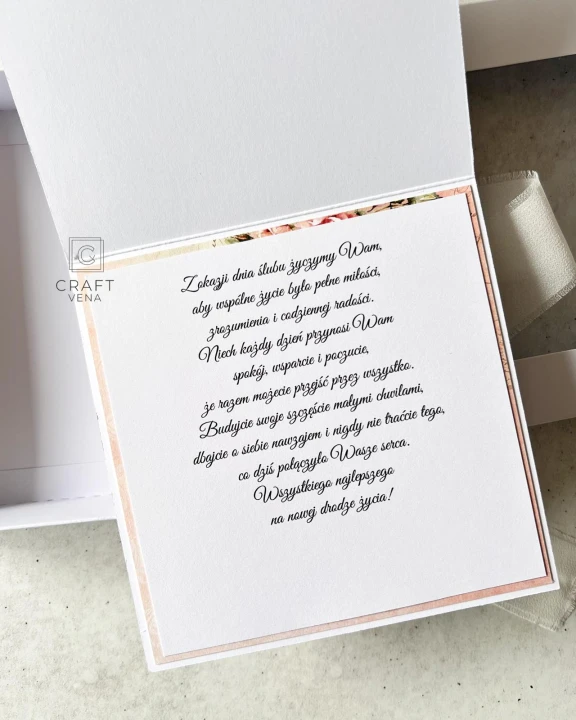 CRAFT
VENA
Z okazji dnia ślubu życzymy Wam,
aby wspólne życie było pełne miłości,
zrozumienia i codziennej radości.
Niech każdy dzień przynosi Wam
spokój, wsparcie i poczucie,
że razem możecie przejść przez wszystko.
Budujcie swoje szczęście małymi chwilami,
dbajcie o siebie nawzajem i nigdy nie traćcie tego,
co dziś połączyło Wasze serca.
Wszystkiego najlepszego
na nowej drodze życia!